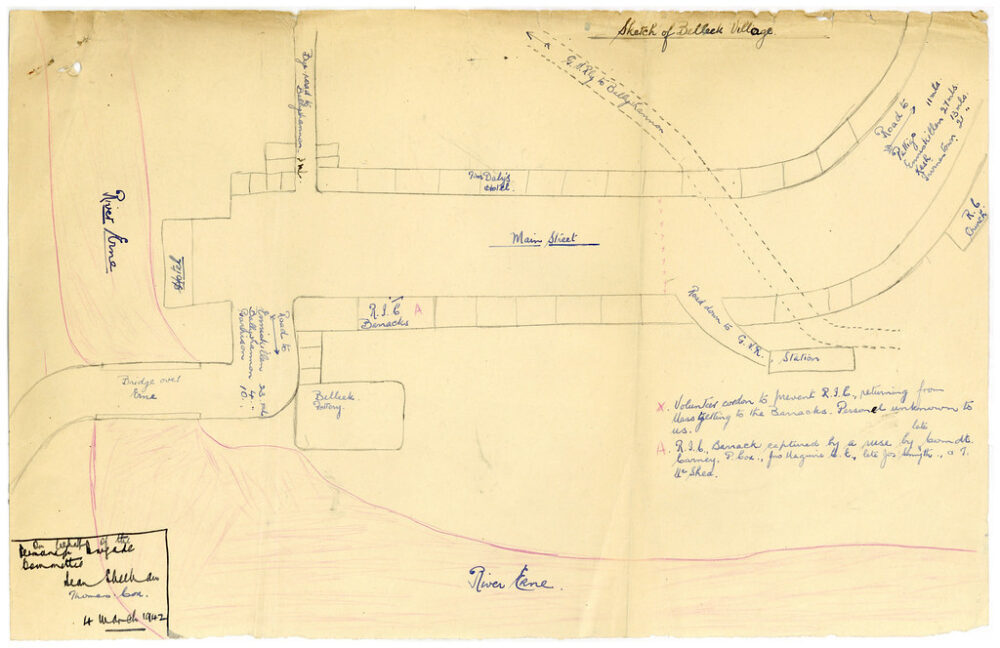 Sketch of Belleek Village
Bye road to
Ballyshannon
G.N.Rly to Ballyshannon
Road to
Pettigo 11 mls.
Enniskillen 27 mls.
Kesk 13 mls.
Irvinestown 21 "
R. C
Church
River Erne
Daly's
Hotel
Main Street
R. I. C
Barracks
A
Road to
Enniskillen 23 mls
Ballyshannon 4 "
Garrison
Road down to G.N.R.
Station
Bridge over
Erne
Belleek
Pottery.
X. Volunteer cordon to prevent R.I.C. returning from
Mass getting to the Barracks. Personel unknown to
us.
late
A. R.I.C. Barrack captured by a ruse by Comdt.
Carney, P. Cox., Jos Maguire late Jos Smyth.,
Shed.
River Erne.
On behalf of the
Fermanagh Brigade
Committee
Thomas Cox.
4 March 1942